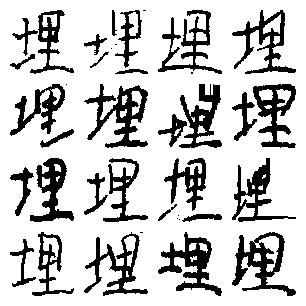 埋埋埋埋
埋埋埋埋
埋埋埋埋
埋埋埋埋